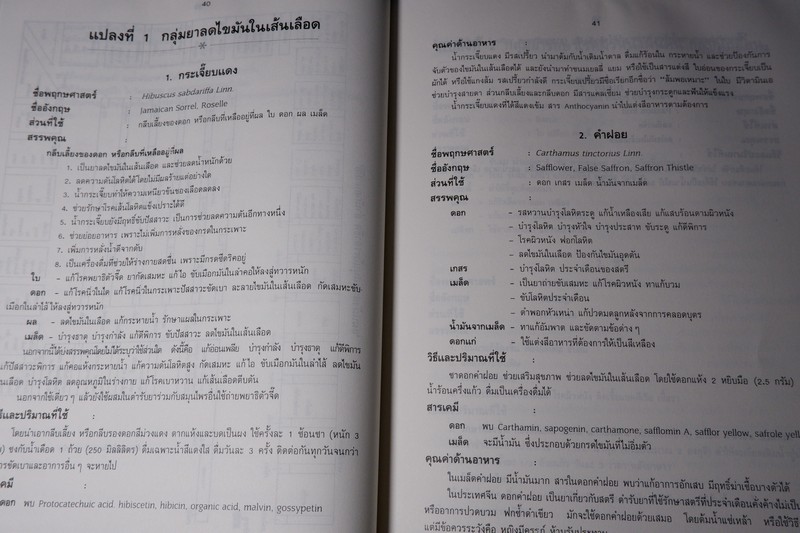 40
แปลงที่ 1 กลุ่มยาลดไขมันในเส้นเลือด
1. กระเจี๊ยบแดง
ชื่อพฤกษศาสตร์ : Hibuscus sabdariffa Linn.
ชื่ออังกฤษ : Jamaican Sorrel, Roselle
ส่วนที่ใช้ : กลีบเลี้ยงของดอก หรือกลีบที่เหลืออยู่ที่ผล ใบ ดอก ผล เมล็ด
สรรพคุณ :
กลีบเลี้ยงของดอก หรือกลีบที่เหลืออยู่ที่ผล
1. เป็นยาลดไขมันในเส้นเลือด และช่วยลดน้ำหนักด้วย
2. ลดความดันโลหิตได้โดยไม่มีผลร้ายแต่อย่างใด
3. น้ำกระเจี๊ยบทำให้ความเหนียวข้นของเลือดลดลง
4. ช่วยรักษาโรคเส้นโลหิตแข็งเปราะได้ดี
5. น้ำกระเจี๊ยบยังมีฤทธิ์ขับปัสสาวะ เป็นการช่วยลดความดันอีกทางหนึ่ง
6. ช่วยย่อยอาหาร เพราะไม่เพิ่มการหลั่งของกรดในกระเพาะ
7. เพิ่มการหลั่งน้ำดีจากตับ
8. เป็นเครื่องดื่มที่ช่วยให้ร่างกายสดชื่น เพราะมีกรดซีตริคอยู่
ใบ - แก้โรคพยาธิตัวจี๊ด ยากัดเสมหะ แก้ไอ ขับเมือกมันในลำคอให้ลงสู่ทวารหนัก
ดอก - แก้โรคนิ่วในไต แก้โรคนิ่วในกระเพาะปัสสาวะขัดเบา ละลายไขมันในเส้นเลือด กัดเสมหะขับ
เมือกในลำไส้ให้ลงสู่ทวารหนัก
ผล - ลดไขมันในเลือด แก้กระหายน้ำ รักษาแผลในกระเพาะ
เมล็ด - บำรุงธาตุ บำรุงกำลัง แก้ดีพิการ ขับปัสสาวะ ลดไขมันในเส้นเลือด
นอกจากนี้ได้บ่งสรรพคุณโดยไม่ได้ระบุว่าใช้ส่วนใด ดังนี้คือ แก้อ่อนเพลีย บำรุงกำลัง บำรุงธาตุ แก้ดีพิการ
แก้ปัสสาวะพิการ แก้คอแห้งกระหายน้ำ แก้ความดันโลหิตสูง กัดเสมหะ แก้ไอ ขับเมือกมันในลำไส้ ลดไขมัน
ในเลือด บำรุงโลหิต ลดอุณหภูมิในร่างกาย แก้โรคเบาหวาน แก้เส้นเลือดตีบตัน
นอกจากใช้เดี่ยว ๆ แล้วยังใช้ผสมในตำรับยาร่วมกับสมุนไพรอื่นใช้ถ่ายพยาธิตัวจี๊ด
และปริมาณที่ใช้ :
โดยนำเอากลีบเลี้ยง หรือกลีบรองดอกสีม่วงแดง ตากแห้งและบดเป็นผง ใช้ครั้งละ 1 ช้อนชา (หนัก 3
) ชงกับน้ำเดือด 1 ถ้วย (250 มิลลิลิตร) ดื่มเฉพาะน้ำสีแดงใส ดื่มวันละ 3 ครั้ง ติดต่อกันทุกวันจนกว่า
การขัดเบาและอาการอื่น ๆ จะหายไป
มี :
ดอก พบ Protocatechuic acid, hibiscetin, hibicin, organic acid, malvin, gossypetin
41
คุณค่าด้านอาหาร :
น้ำกระเจี๊ยบแดง มีรสเปรี้ยว นำมาต้มกับน้ำเติมน้ำตาล ดื่มแก้ร้อนใน กระหายน้ำ และช่วยป้องกันการ
จับตัวของไขมันในเส้นเลือดได้ และยังนำมาทำขนมเยลลี่ แยม หรือใช้เป็นสารแต่งสี ใบอ่อนของกระเจี๊ยบเป็น
ผักได้ หรือใช้แกงส้ม รสเปรี้ยวกำลังดี กระเจี๊ยบเปรี้ยวมีชื่อเรียกอีกชื่อว่า "ส้มพอเหมาะ" ในใบ มีวิตามินเอ
ช่วยบำรุงสายตา ส่วนกลีบเลี้ยงและกลีบดอก มีสารแคลเซียม ช่วยบำรุงกระดูกและฟันให้แข็งแรง
น้ำกระเจี๊ยบแดงที่ได้สีแดงเข้ม สาร Anthocyanin นำไปแต่งสีอาหารตามต้องการ
2. คำฝอย
ชื่อพฤกษศาสตร์ : Carthamus tinctorius Linn.
ชื่ออังกฤษ : Safflower, False Saffron, Saffron Thistle
ส่วนที่ใช้ : ดอก เกสร เมล็ด น้ำมันจากเมล็ด
สรรพคุณ :
ดอก - รสหวานบำรุงโลหิตระดู แก้น้ำเหลืองเสีย แก้แสบร้อนตามผิวหนัง
- บำรุงโลหิต บำรุงหัวใจ บำรุงประสาท ขับระดู แก้ดีพิการ
- โรคผิวหนัง ฟอกโลหิต
- ลดไขมันในเลือด ป้องกันไขมันอุดตัน
เกสร - บำรุงโลหิต ประจำเดือนของสตรี
เมล็ด - เป็นยาถ่ายขับเสมหะ แก้โรคผิวหนัง ทาแก้บวม
- ขับโลหิตประจำเดือน
- ตำพอกหัวเหน่า แก้ปวดมดลูกหลังจากการคลอดบุตร
น้ำมันจากเมล็ด - ทาแก้อัมพาต และขัดตามข้อต่าง ๆ
ดอกแก่ - ใช้แต่งสีอาหารที่ต้องการให้เป็นสีเหลือง
วิธีและปริมาณที่ใช้ :
ชาดอกคำฝอย ช่วยเสริมสุขภาพ ช่วยลดไขมันในเส้นเลือด โดยใช้ดอกแห้ง 2 หยิบมือ (2.5 กรัม)
น้ำร้อนครึ่งแก้ว ดื่มเป็นเครื่องดื่มได้
สารเคมี :
ดอก พบ Carthamin, sapogenin, carthamone, safflomin A, safflor yellow, safrole yell
เมล็ด จะมีน้ำมัน ซึ่งประกอบด้วยกรดไขมันที่ไม่อิ่มตัว
คุณค่าด้านอาหาร :
ในเมล็ดคำฝอย มีน้ำมันมาก สารในดอกคำฝอย พบว่าแก้อาการอักเสบ มีฤทธิ์ฆ่าเชื้อบางตัวได้
ในประเทศจีน ดอกคำฝอย เป็นยาเกี่ยวกับสตรี ตำรับยาที่ใช้รักษาสตรีที่ประจำเดือนคั่งค้างไม่เป็น
หรืออาการปวดบวม ฟกช้ำดำเขียว มักจะใช้ดอกคำฝอยด้วยเสมอ โดยต้มน้ำแช่เหล้า หรือใช้วิธี
แต่มีข้อควรระวังคือ หญิงมีครรภ์ ห้ามรับประทาน